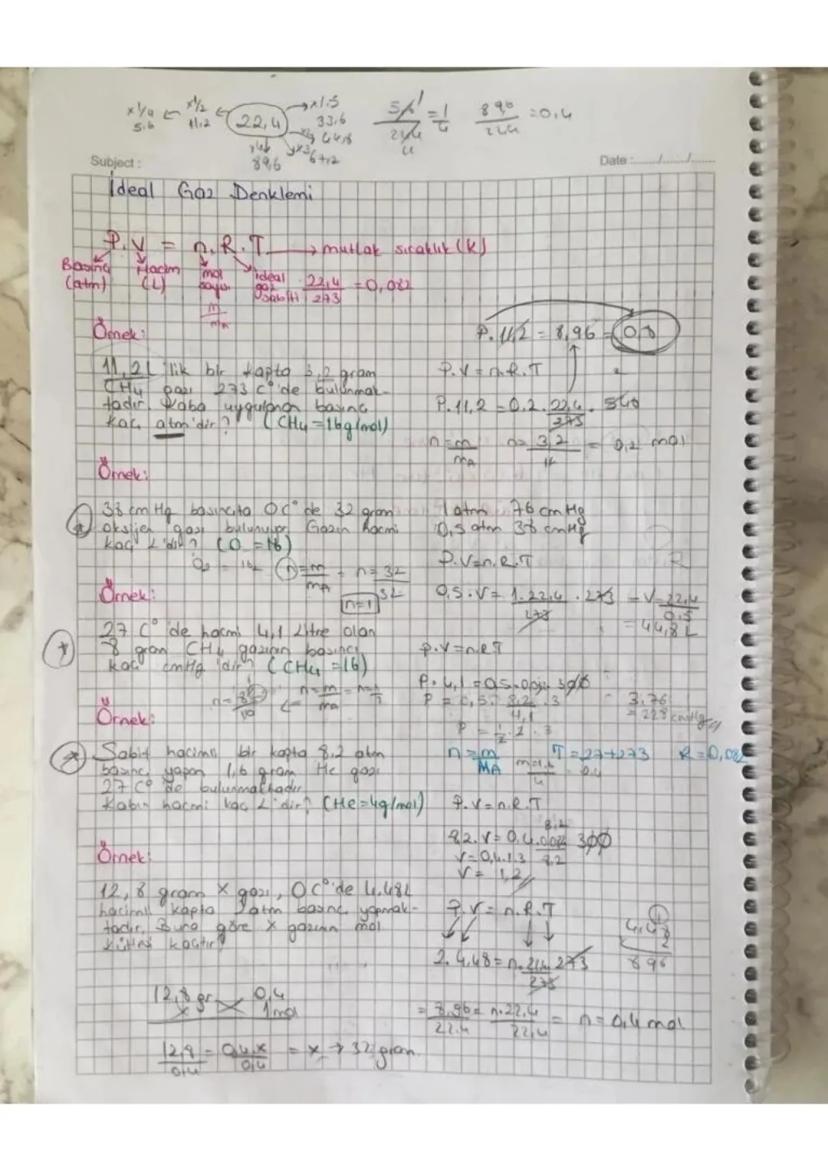 x1/4 ← x1/2 ← 22,4 → x1.5
5.6 11,2 33,6
x2 44,8
x4 x3
89,6 67,2
5,6/22,4 = 1/4
8,96/22,4 = 0,4
Subject : Date : ....../....../......
İdeal Gaz Denklemi
P.V = n.R.T → mutlak sıcaklık (K)
Basınç Hacim mol ideal
(atm) (L) sayısı gaz 22,4/273 = 0,082
m/mA sabiti
Örnek:
11,2 L lik bir kapta 3,2 gram
CH4 gazı 273 C° de bulunmak-
tadır. Kaba uygulanan basınç
kaç atm'dir? (CH4 = 16 g/mol)
P. 11,2 = 8,96 = 0,8
P.V = n.R.T
P. 11,2 = 0.2. 22,4/273 . 546
n = m/mA n = 3,2/16 = 0,2 mol
Örnek:
38 cmHg basınçta 0 C° de 32 gram
oksijen gazı bulunuyor. Gazın hacmi
kaç L'dir? (O = 16)
n = m/mA = n = 32/32
n=1
1 atm 76 cmHg
0,5 atm 38 cmHg
P.V=n.R.T
0,5.V = 1.22,4/273 . 273 = V = 22,4/0,5
= 44,8 L
Örnek:
27 C° de hacmi 4,1 Litre olan
8 gram CH4 gazının basıncı
kaç cmHg 'dır? (CH4 = 16)
n = m/mA
P.V=n.R.T
P. 4,1 = 0,5 . 0,082 . 300
P = 0,5 . 8,2/4,1 . 3
P = 1/2 . 2 . 3
3.76
= 228 cmHg
Örnek:
Sabit hacimli bir kapta 8,2 atm
basınç yapan 1,6 gram He gazı
27 C° de bulunmaktadır
Kabın hacmi kaç L'dir? (He = 4g/mol)
n = m/MA T = 27+273 R = 0,082
P.V = n.R.T
8.2. V = 0,4 . 0,082 300
V = 0,4.1.3
V = 1,2
Örnek:
12,8 gram X gazı, 0 C° de 4.48 L
hacimli kapta 2 atm basınç yapmak-
tadır. Buna göre X gazının mol
kütlesi kaçtır?
P.V = n.R.T
4,48
2
8 96
2. 4.48 = n. 22,4/273 273
= 8,96/22.4 = n.22,4/22,4 = n = 0,4 mol
12,8 gr 0,4
x 1 mol
12,8/0,4 = 0,4.x/0,4 = x → 32 gram.